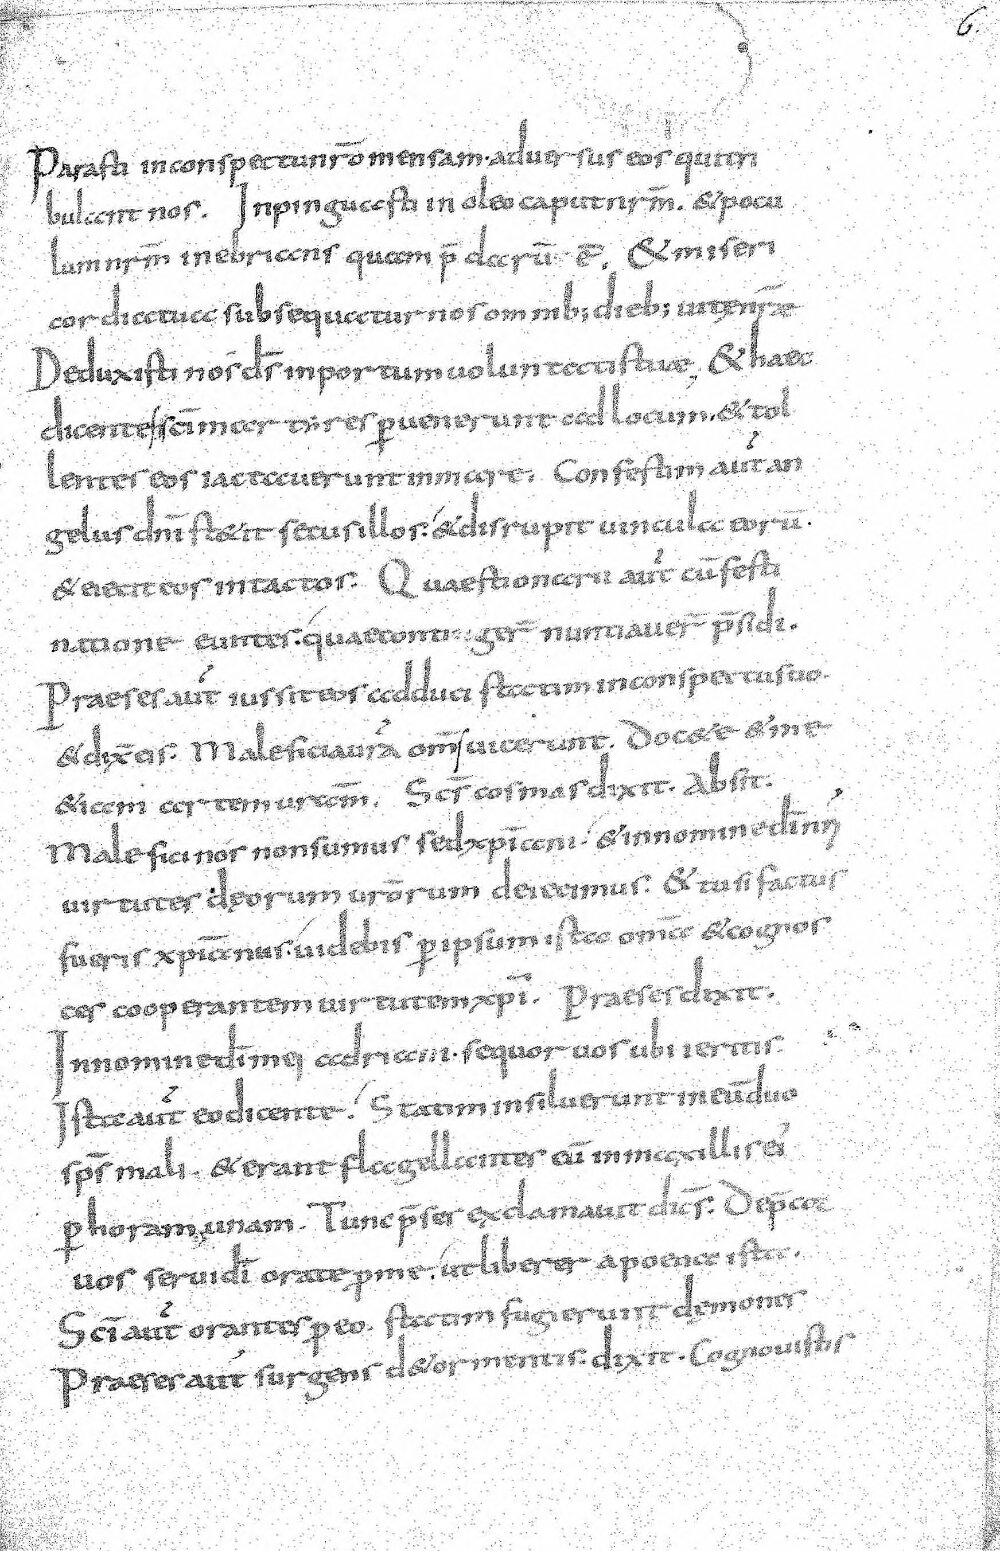 6.
Parasti inconspectunrōmensam·aduersus eos quitri
bulant nos. Inpinguasti in oleo caputnrm̄. &pocu
lum nrm̄ inebrians quam p̄claruˉ eˉ. &miseri
cordiatua subsequaturnos omnib; dieb; uitęnrae
Deduxisti nos ds̄ inportumuoluntatistuae, &haec
dicentes sci̅martires ꝑuenerunt adlocum.&tol
lentes eos iactauerunt inmare. Confestim aut̄ an
gelus dni̅ st&it secusillos: &disrupit uincula eorū.
&eiecit eos intactos: Quaestionarii aut̄ cūfesti
natione euntes: quaeconti ger̄ nuntiauer̄ p̄sidi.
Praesesaut̄ iussit eos adduci statim inconspectusuo.
&dix̄eis. Maleficiaurā om̄s uicerunt. Doc&e &me
&iam artem uram̄. Scs̄ cosmas dixit. Absit.
Malefici nos nonsumus sedxpi̅ani. &innominedi̅nr̄i
uirtutes deorum urōrum deiecimus: &tusifactus
fueris xpi̅anus. uidebis ꝑipsum ista om̄a &cognos
ces cooperantem uirtutemxpi̅. Praesesdixit.
Innominedi̅mei adriani·sequoruos ubi ieritis.
Istaaut̄ eodicente. Statim insiluerunt ineūduo
sps̄ mali. &erant flagellantes eū inmaxillis ei
ꝑhoram unam. Tunc p̄ses exclamauit dics̄: Dep̄cor
uos seruidi̅ orate ꝓme. utliberer apoena ista.
Sci̅aut̄ orantes ꝓeo. statim fugierunt demones
Praesesaut̄ surgens d&ormentis. dixit. Cognouistis